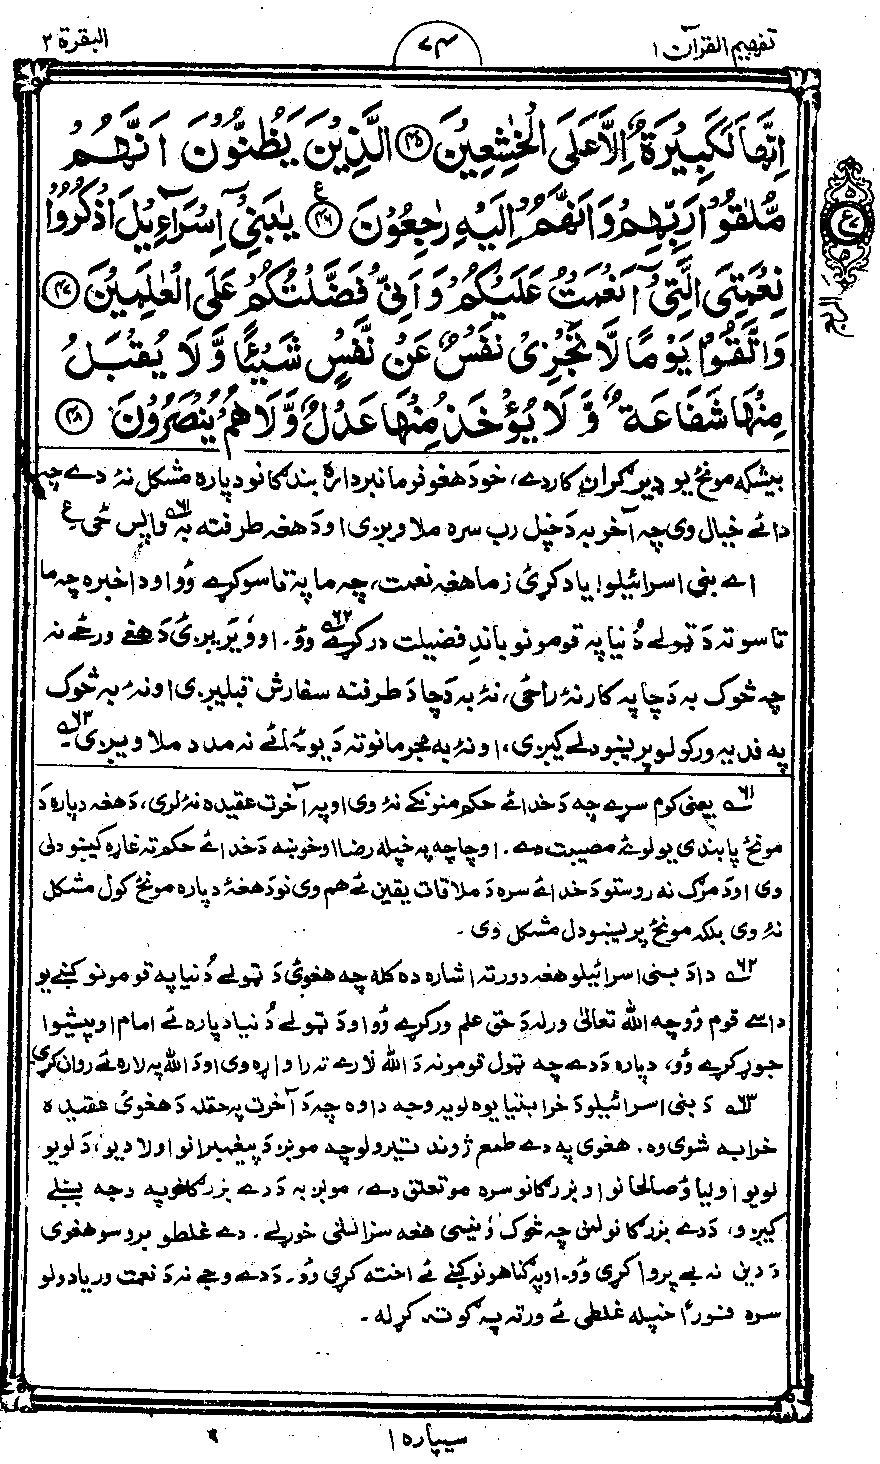 تفهیم القرآن ۱
۷۴
البقرة ۲
اِنَّهَا لَكَبِيْرَةٌ اِلَّا عَلَى الْخٰشِعِيْنَ ﴿۴۵﴾ الَّذِيْنَ يَظُنُّوْنَ اَنَّهُمْ
مُّلٰقُوْا رَبِّهِمْ وَاَنَّهُمْ اِلَيْهِ رٰجِعُوْنَ ﴿۴۶﴾ ع يٰبَنِىْٓ اِسْرَآءِيْلَ اذْكُرُوْا
نِعْمَتِىَ الَّتِىْٓ اَنْعَمْتُ عَلَيْكُمْ وَاَنِّىْ فَضَّلْتُكُمْ عَلَى الْعٰلَمِيْنَ ﴿۴۷﴾
وَاتَّقُوْا يَوْمًا لَّا تَجْزِىْ نَفْسٌ عَنْ نَّفْسٍ شَيْئًا وَّلَا يُقْبَلُ
مِنْهَا شَفَاعَةٌ وَّلَا يُؤْخَذُ مِنْهَا عَدْلٌ وَّلَا هُمْ يُنْصَرُوْنَ ﴿۴۸﴾
ع
الربع
بیشکه مونځ یو ډیر ګران کار دے، خود هغو فرمانبردارۀ بندګانو دپاره مشکل نۀ دے چہ
دائے خیال وی چہ آخر بہ دَ خپل رب سره ملاویږی او دَ هغہ طرفتہ بہ واپس ځی ۶۱ ع
اے بنی اسرائیلو! یاد کړئ زما هغہ نعمت، چہ ما پۀ تاسو کړے وُو او دا خبره چہ ما
تاسو تہ دَ ټولے دُنیا پہ قومونو باندِ فضیلت درکړے ۶۲ وُو. او ویریږئ دَ هغے ورځے نہ
چہ څوک بہ دَ چا پہ کار نۀ راځی، نۀ بہ دَ چا دَ طرفتہ سفارش قبلیږی او نہ بہ څوک
پہ فدیہ ورکولو پریښودلے کیږی، او نۀ بہ مجرمانو تہ دَ یو ځائے نہ مدد ملاویږی ۶۳۔
۶۱ یعنی کوم سرے چہ دَ خدائے حکم منونکے نۀ وی او پہ آخرت عقیده نۀ لری، دَ هغہ دپاره دَ
مونځ پابندی یو لوئے مصیبت دے. او چا چہ پہ خپلہ رضا او خوښہ دَ خدائے حکم تہ غاړه کیښودلی
وی او دَ مرګ نہ روستو دَ خدائے سره دَ ملاقات یقین ئے هم وی نو دَ هغۀ دپاره مونځ کول مشکل
نۀ وی بلکہ مونځ پریښودل مشکل وی.
۶۲ دا دَ بنی اسرائیلو هغہ دور تہ اشاره ده کلہ چہ هغوئ دَ ټولے دُنیا پہ قومونو کښے یو
داسے قوم وُو چہ الله تعالیٰ ورلہ دَ حق علم ورکړے وُو او دَ ټولے دُنیا دپاره ئے امام او پیشوا
جوړ کړے وُو، دپاره دَ دے چہ ټول قومونہ دَ الله لارے تہ را واړه وی او دَ الله پہ لاره ئے روان کړی
۶۳ دَ بنی اسرائیلو دَ خرابتیا یوه لویہ وجہ دا وه چہ دَ آخرت پہ حقلہ دَ هغوئ عقیده
خرابہ شوی وه. هغوی پہ دے طمع ژوند تیرولو چہ مونږ دَ پیغمبرانو اولاد یو، دَ لویو
لویو اولیاؤ صالحانو او بزرګانو سره مو تعلق دے، مونږ بہ دَ دے بزرګانو پہ وجہ بښلے
کیږو، دَ دے بزرګانو لمن چہ څوک وُنیسی هغہ سزا نشی خوړلے. دے غلطو بروسو هغوی
دَ دین نہ بے پروا کړی وُو. او پہ ګناهونو کښے ئے اختہ کړی وُو. دَ دے وجے نہ دَ نعمت وریادولو
سره فوراً خپلہ غلطی ئے ورتہ پہ ګوتہ کړلہ.
سیپاره ۱